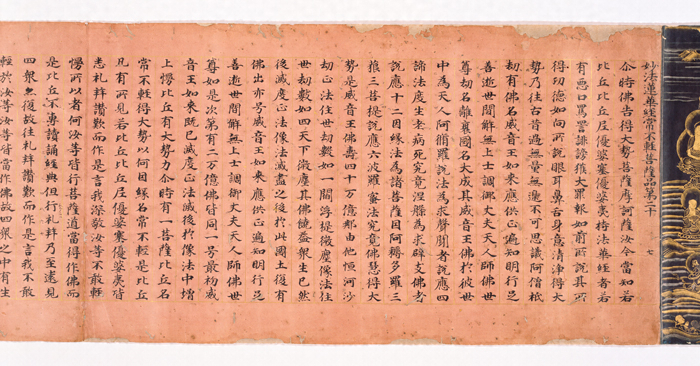 妙法蓮華經常不輕菩薩品第二十 七
尒時佛告得大勢菩薩摩訶薩汝今當知若
比丘比丘尼優婆塞優婆夷持法華經者若
有惡口罵詈誹謗獲大罪報如前所說其所
得功德如向所說眼耳鼻舌身意清淨得大
勢乃往古昔過無量無邊不可思議阿僧祇
劫有佛名威音王如來應供正遍知明行足
善逝世間解無上士調御丈夫天人師佛世
尊劫名離衰國名大成其威音王佛於彼世
中為天人阿脩羅說法為求聲聞者說應四
諦法度生老病死究竟涅槃為求辟支佛者
說應十二因緣法為諸菩薩因阿耨多羅三
藐三菩提說應六波羅蜜法究竟佛慧得大
勢是威音王佛壽四十万億那由他恒河沙
劫正法住世劫數如一閻浮提微塵像法住
世劫數如四天下微塵其佛饒益衆生已然
後滅度正法像法滅盡之後於此國土復有
佛出亦号威音王如來應供正遍知明行足
善逝世間解無上士調御丈夫天人師佛世
尊如是次第有二万億佛皆同一号最初威
音王如來既已滅度正法滅後於像法中增
上慢比丘有大勢力尒時有一菩薩比丘名
常不輕得大勢以何因緣名常不輕是比丘
凡有所見若比丘比丘尼優婆塞優婆夷皆
悉礼拜讚歎而作是言我深敬汝等不敢輕
慢所以者何汝等皆行菩薩道當得作佛而
是比丘不專讀誦經典但行礼拜乃至遠見
四衆亦復故往礼拜讚歎而作是言我不敢
輕於汝等汝等皆當作佛故四衆之中有生